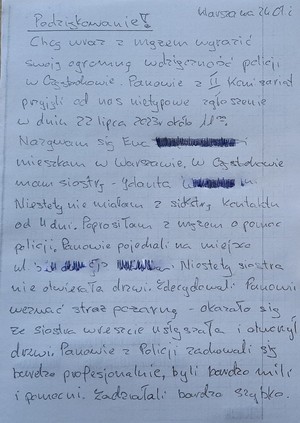 Warszawa 24.01
Podziękowanie!
Chcę wraz z mężem wyrazić
swoją ogromną wdzięczność policji
w Częstochowie. Panowie z II Komisariat
przyjęli od nas nietypowe zgłoszenie
w dniu 22 lipca 2023r około 11
Nazywam się Ewa
mieszkam w Warszawie, w Częstochowie
mam siostrę - Jolanta
Niestety nie miałam z siostrą kontaktu
od 4 dni. Poprosiłam z mężem o pomoc
policji, Panowie pojechali na miejsce
ul. Niestety siostra
nie otwierała drzwi. Zdecydowali Panowie
wezwać straż pożarną - okazało się
że siostra wreszcie usłyszała i otworzył
drzwi. Panowie z Policji zachowali się
bardzo profesjonalnie, byli bardzo mili
i pomocni. Zadziałali bardzo szybko.